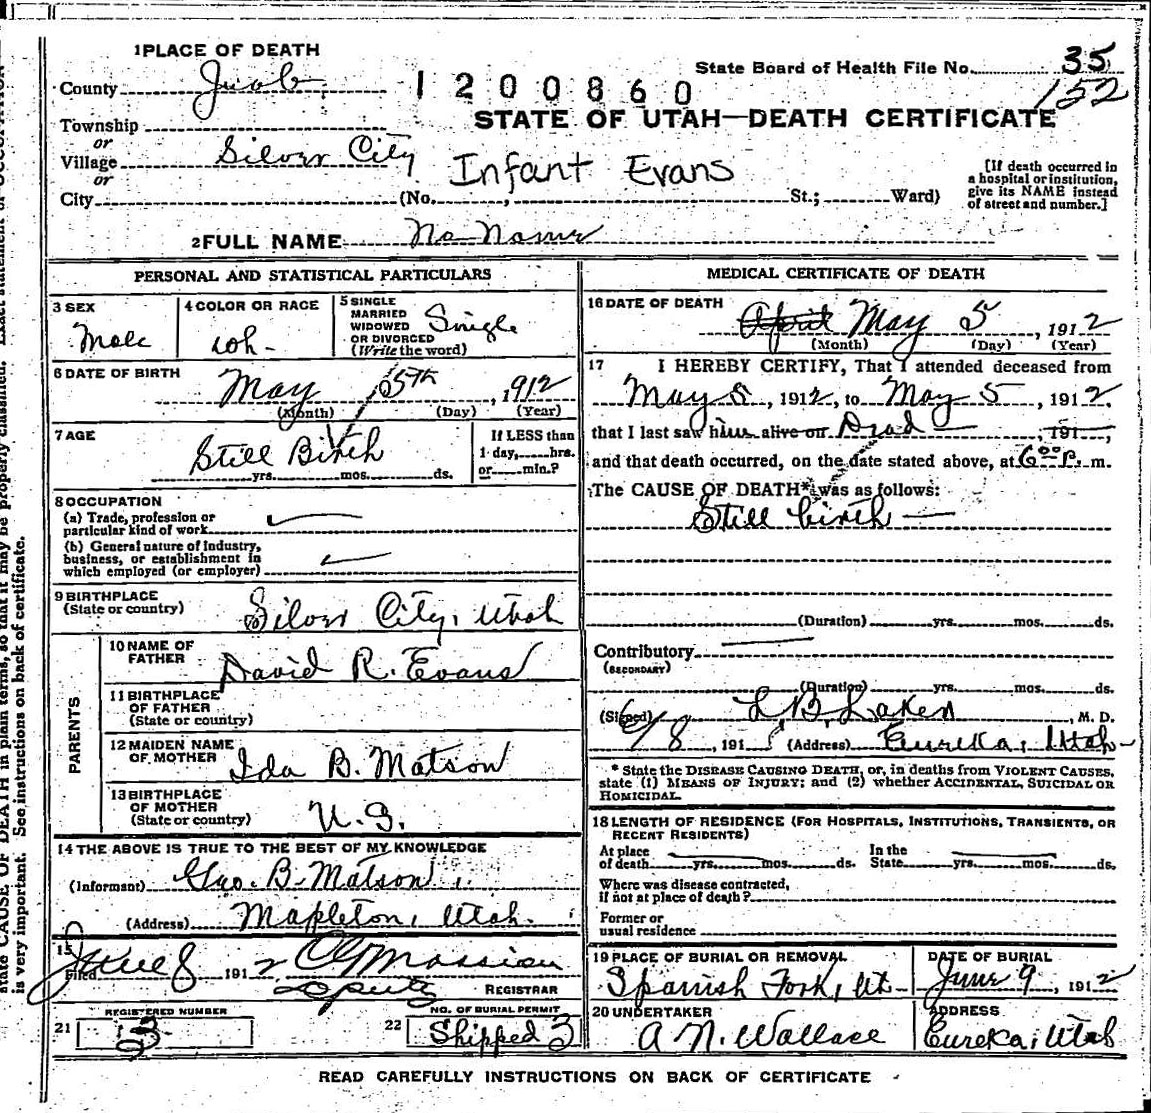 1 PLACE OF DEATH
County Juab
1200860
State Board of Health File No. 35
152
STATE OF UTAH—DEATH CERTIFICATE
Township
or
Village Silver City
Infant Evans
or
City (No. , St.; Ward)
[If death occurred in
a hospital or institution,
give its NAME instead
of street and number.]
2 FULL NAME No Name
PERSONAL AND STATISTICAL PARTICULARS
3 SEX
Male
4 COLOR OR RACE
wh-
5 SINGLE
MARRIED
WIDOWED
OR DIVORCED
(Write the word)
Single
6 DATE OF BIRTH
May 5th, 1912
(Month) (Day) (Year)
7 AGE
Still Birth
yrs. mos. ds.
If LESS than
1 day, hrs.
or min.?
8 OCCUPATION
(a) Trade, profession or
particular kind of work
(b) General nature of industry,
business, or establishment in
which employed (or employer)
9 BIRTHPLACE
(State or country)
Silver City, Utah
PARENTS
10 NAME OF
FATHER
David R. Evans
11 BIRTHPLACE
OF FATHER
(State or country)
12 MAIDEN NAME
OF MOTHER
Ida B. Matson
13 BIRTHPLACE
OF MOTHER
(State or country)
U.S.
14 THE ABOVE IS TRUE TO THE BEST OF MY KNOWLEDGE
(Informant) Geo. B. Matson
(Address) Mapleton, Utah.
15
Filed June 8 1912
Deputy REGISTRAR
21 REGISTERED NUMBER
3
22 NO. OF BURIAL PERMIT
Shipped 3
MEDICAL CERTIFICATE OF DEATH
16 DATE OF DEATH
April May 5, 1912
(Month) (Day) (Year)
17 I HEREBY CERTIFY, That I attended deceased from
May 5, 1912, to May 5, 1912,
that I last saw him alive on Dead, 191 ,
and that death occurred, on the date stated above, at 6 00 P. m.
The CAUSE OF DEATH* was as follows:
Still birth —
(Duration) yrs. mos. ds.
Contributory
(SECONDARY)
(Duration) yrs. mos. ds.
(Signed) L. B. Laker, M. D.
6/8, 191 (Address) Eureka, Utah
* State the DISEASE CAUSING DEATH, or, in deaths from VIOLENT CAUSES,
state (1) MEANS OF INJURY; and (2) whether ACCIDENTAL, SUICIDAL OR
HOMICIDAL.
18 LENGTH OF RESIDENCE (FOR HOSPITALS, INSTITUTIONS, TRANSIENTS, OR
RECENT RESIDENTS)
At place
of death yrs. mos. ds.
In the
State yrs. mos. ds.
Where was disease contracted,
if not at place of death?
Former or
usual residence
19 PLACE OF BURIAL OR REMOVAL
Spanish Fork, Ut
DATE OF BURIAL
June 9, 1912
20 UNDERTAKER
A. N. Wallace
ADDRESS
Eureka, Utah
READ CAREFULLY INSTRUCTIONS ON BACK OF CERTIFICATE
state CAUSE OF DEATH in plain terms, so that it may be properly classified. Exact statement of OCCUPATION
is very important. See instructions on back of certificate.